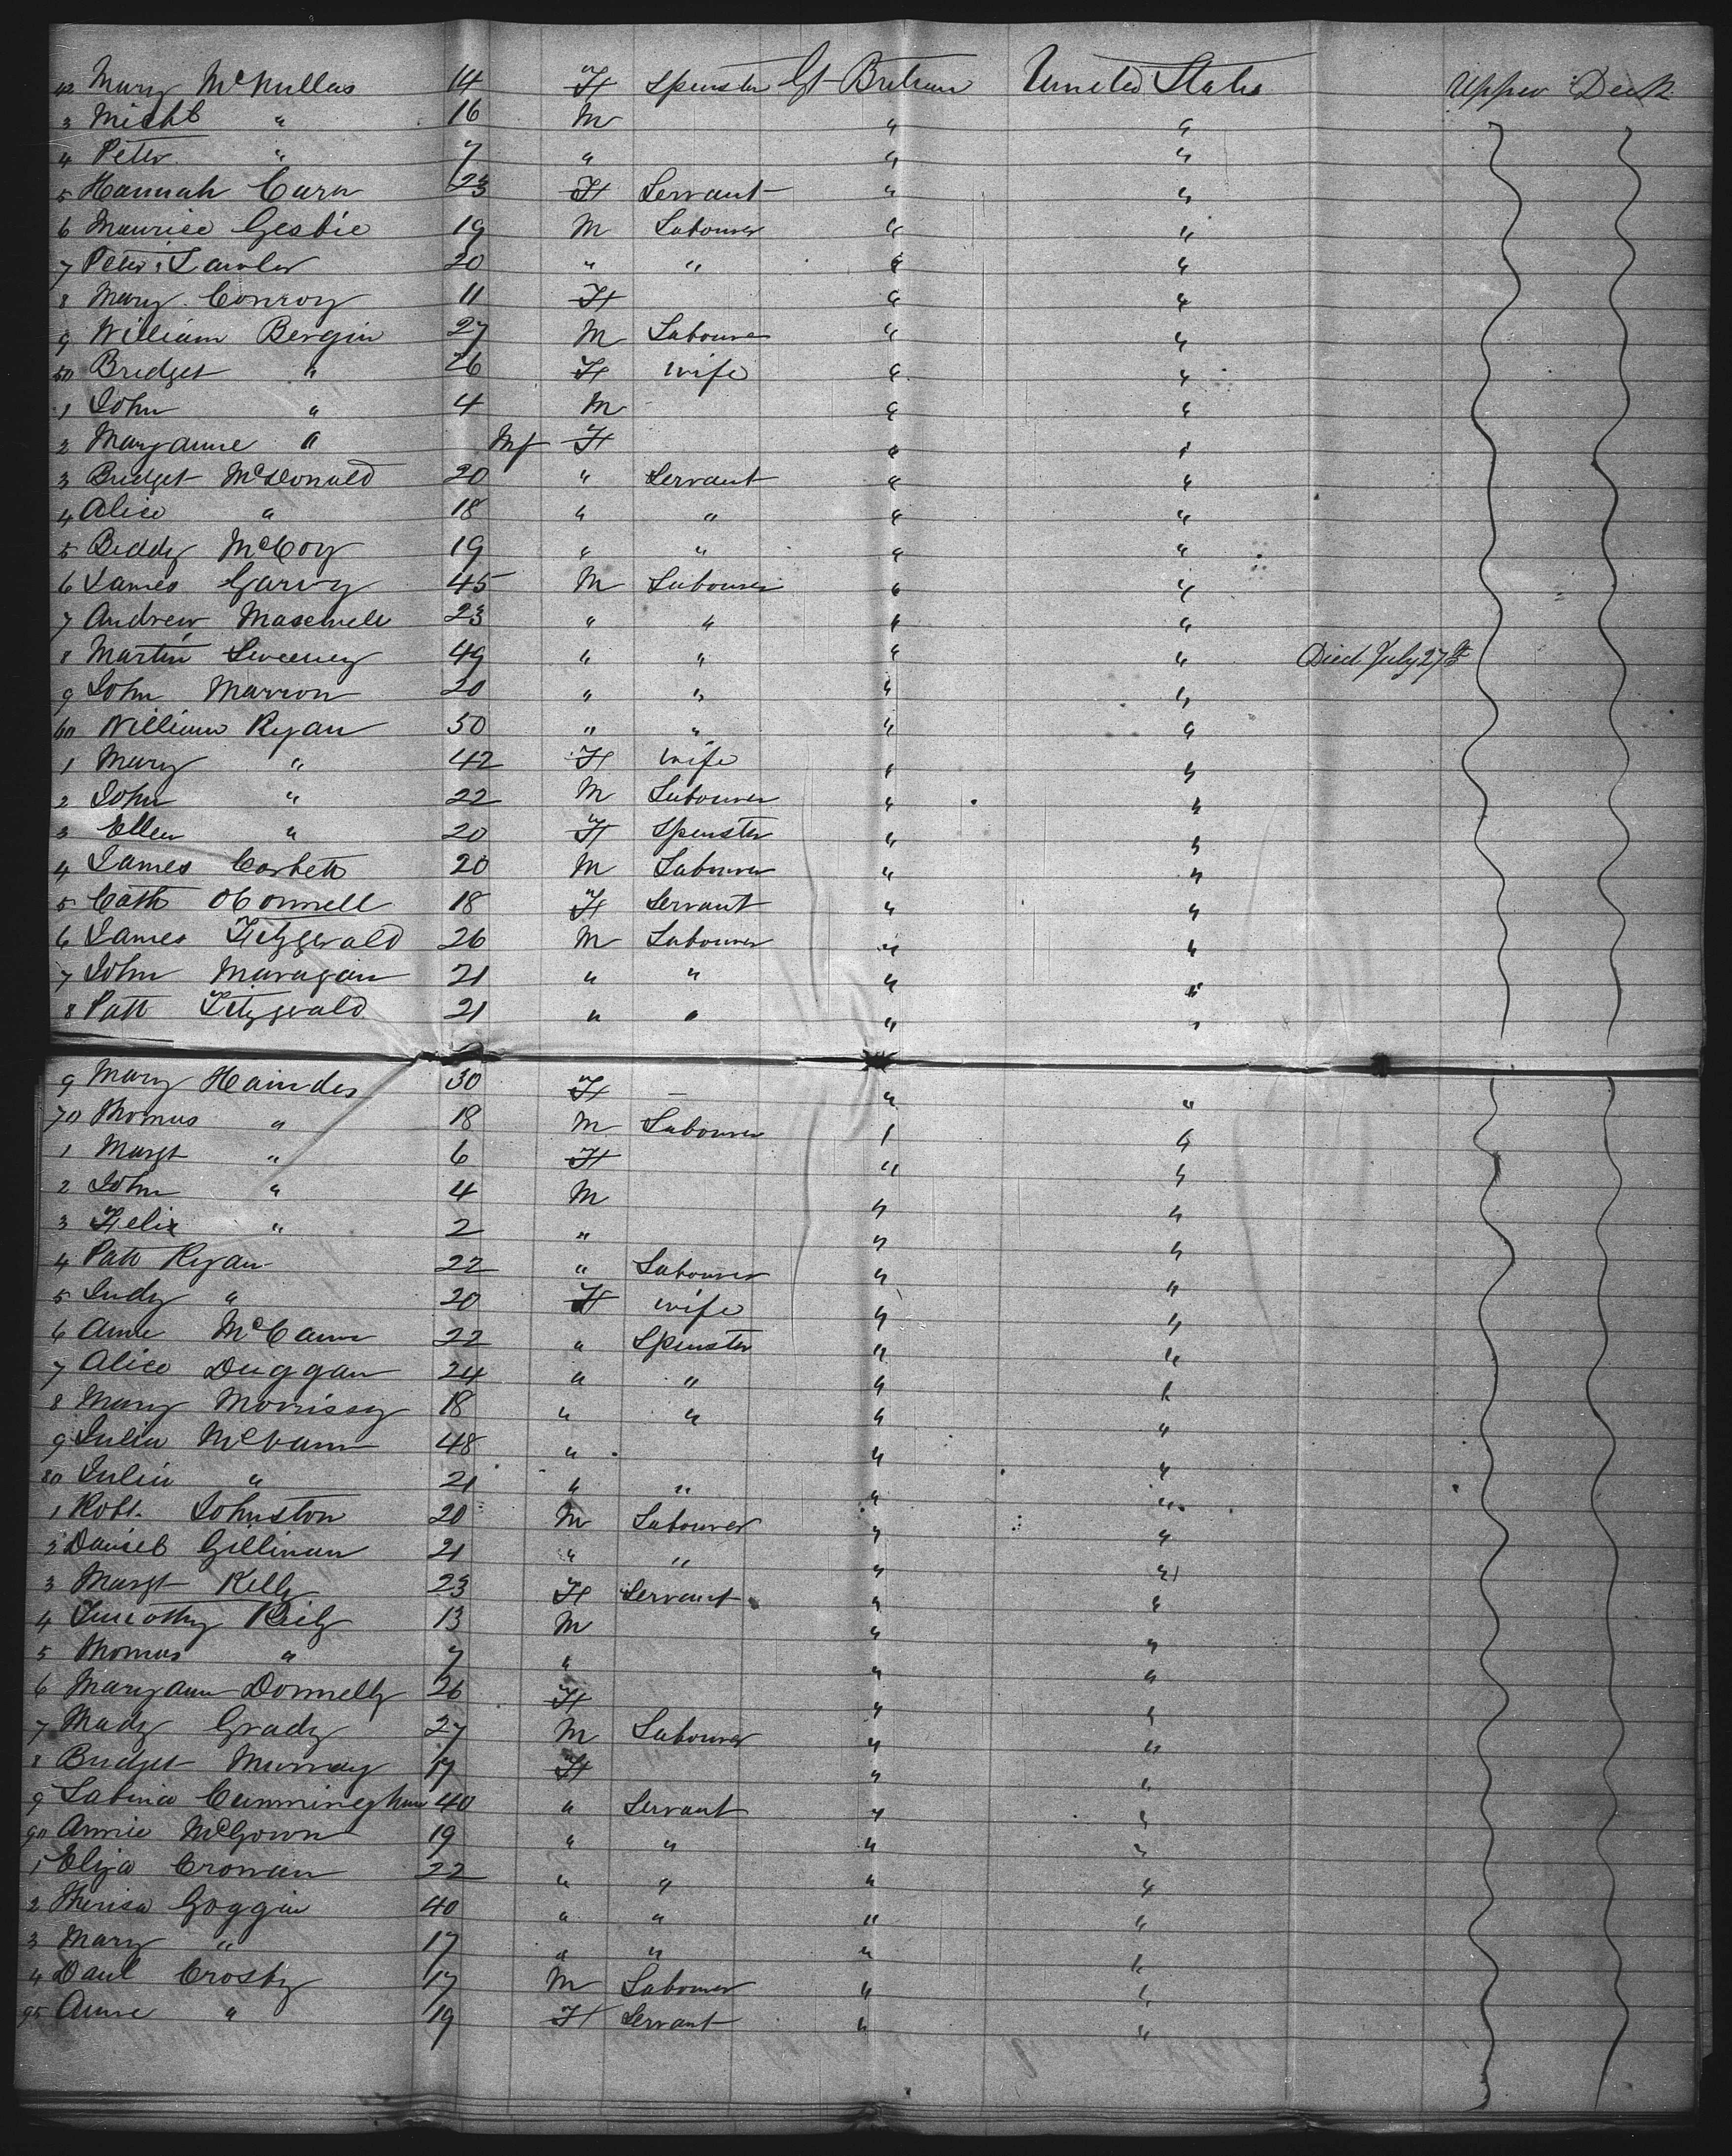 42 Mary McNullas 14 F Spinster Gt Britain United States Upper Deck
3 Michl " 16 M " "
4 Peter " 7 " " "
5 Hannah Carn 23 F Servant " "
6 Maurice Gesbie 19 M Labourer " "
7 Peter Lawler 20 " " " "
8 Mary Conroy 11 F " "
9 William Bergin 27 M Labourer " "
50 Bridget " 26 F wife " "
1 John " 4 M " "
2 Maryanne " Inf F " "
3 Bridget McDonald 20 " Servant " "
4 Alice " 18 " " " "
5 Biddy McCoy 19 " " " "
6 James Garvy 45 M Labourer " "
7 Andrew Maxwell 23 " " " "
8 Martin Sweeney 49 " " " " Died July 27th
9 John Marron 20 " " " "
60 William Ryan 50 " " " "
1 Mary " 42 F wife " "
2 John " 22 M Labourer " "
3 Ellen " 20 F Spinster " "
4 James Corbett 20 M Labourer " "
5 Cath OConnell 18 F Servant " "
6 James Fitzgerald 26 M Labourer " "
7 John Maragan 21 " " " "
8 Patt Fitzgerald 21 " " " "
9 Mary Haindes 30 F — " "
70 Thomas " 18 M Labourer " "
1 Margt " 6 F " "
2 John " 4 M " "
3 Felix " 2 " " "
4 Patt Ryan 22 " Labourer " "
5 Judy " 20 F wife " "
6 Anne McCann 22 " Spinster " "
7 Alice Duggan 24 " " " "
8 Mary Morrissy 18 " " " "
9 Julia McCann 48 " " "
80 Julia " 21 " " " "
1 Robt. Johnston 20 M Labourer " "
2 Daniel Gillinan 21 " " " "
3 Margt Kelly 23 F Servant " "
4 Timothy Reily 13 M " "
5 Thomas " 7 " " "
6 Maryann Donnelly 26 F " "
7 Mady Grady 27 M Labourer " "
8 Bridget Murray 17 F " "
9 Sabina Cunningham 40 " Servant " "
90 Annie McGown 19 " " " "
1 Eliza Cronan 22 " " " "
2 Therisa Goggin 40 " " " "
3 Mary " 17 " " " "
4 Danl Crosby 17 M Labourer " "
95 Anne " 19 F Servant " "